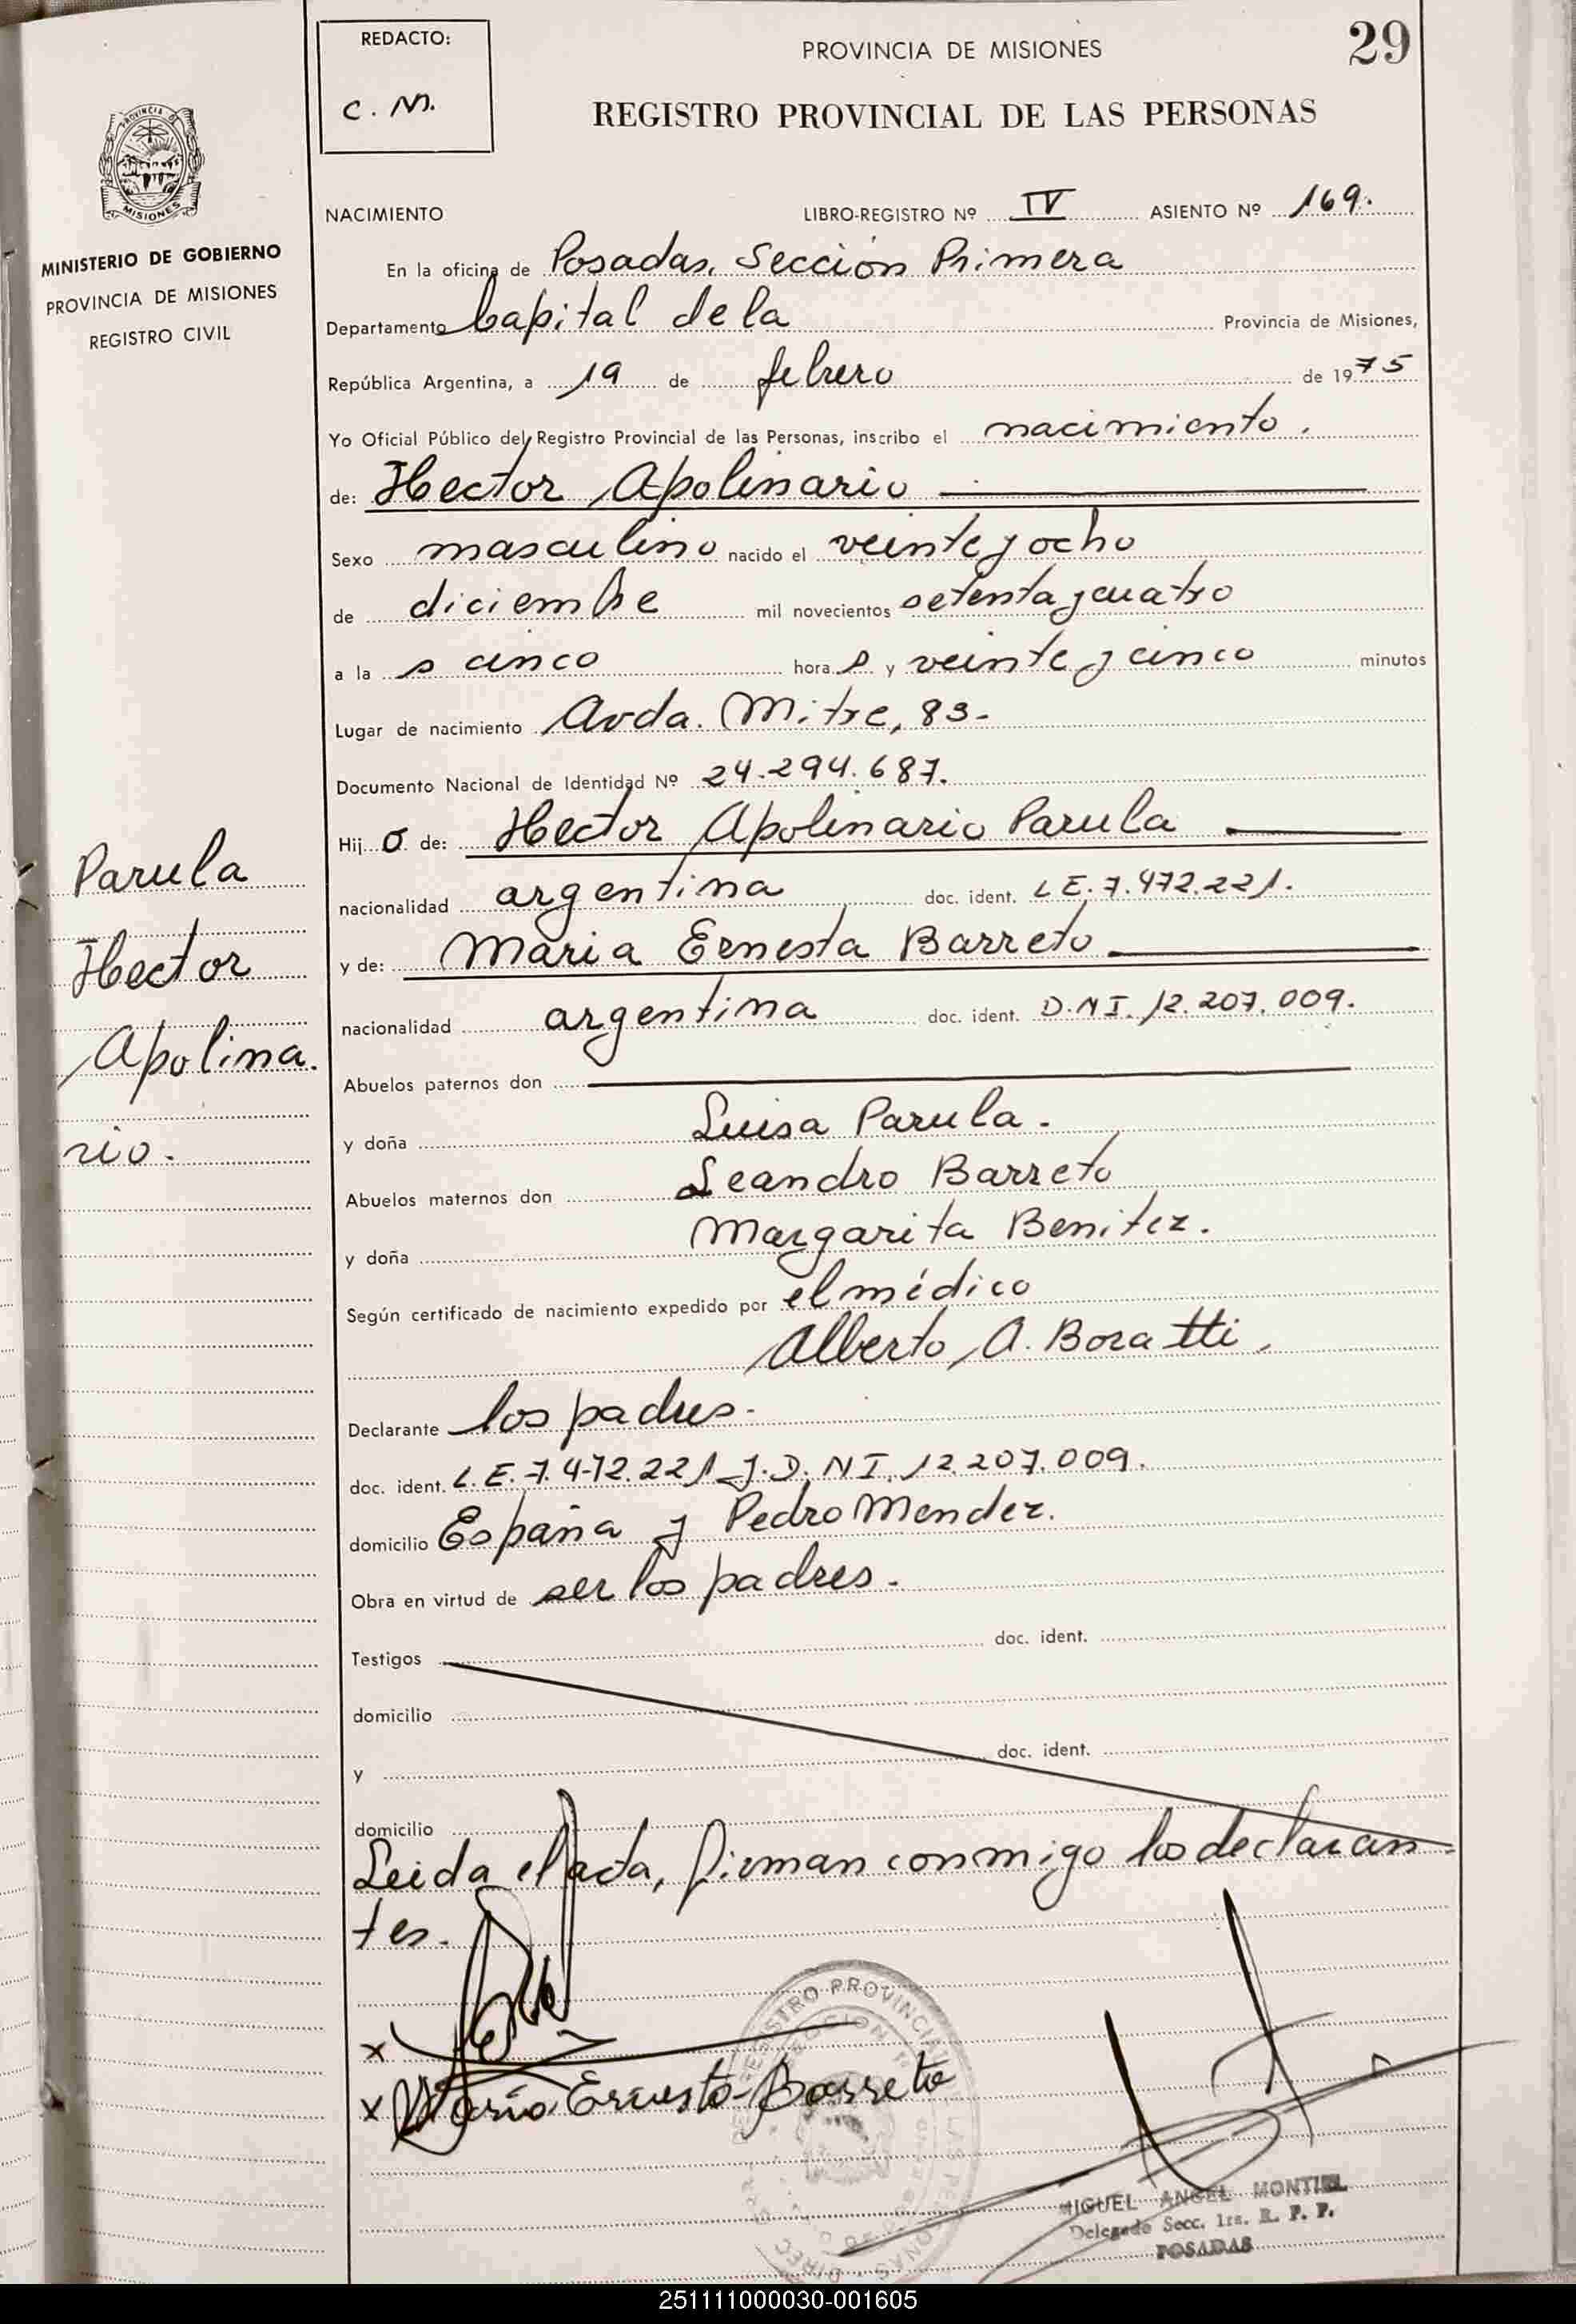 REDACTO:
C. M.
PROVINCIA DE MISIONES
29
REGISTRO PROVINCIAL DE LAS PERSONAS
PROVINCIA DE
MISIONES
MINISTERIO DE GOBIERNO
PROVINCIA DE MISIONES
REGISTRO CIVIL
NACIMIENTO LIBRO-REGISTRO Nº IV ASIENTO Nº 169.
En la oficina de Posadas, Sección Primera
Departamento Capital de la Provincia de Misiones,
República Argentina, a 19 de febrero de 1975
Yo Oficial Público del Registro Provincial de las Personas, inscribo el nacimiento.
de: Hector Apolinario
Sexo masculino nacido el veinte y ocho
de diciembre mil novecientos setenta y cuatro
a la s cinco hora s y veinte y cinco minutos
Lugar de nacimiento Avda. Mitre, 83.-
Documento Nacional de Identidad Nº 24.294.687.
Hij o de: Hector Apolinario Parula
nacionalidad argentina doc. ident. L E. 7.472.221.
y de: Maria Ernesta Barreto
nacionalidad argentina doc. ident. D.N I. 12.207.009.
Abuelos paternos don
y doña Luisa Parula.
Abuelos maternos don Leandro Barreto
y doña Margarita Benitez.
Según certificado de nacimiento expedido por el médico
Alberto A. Boratti,
Declarante los padres.-
doc. ident. L.E. 7.472.221 y D.NI. 12.207.009.
domicilio España y Pedro Mendez.
Obra en virtud de ser los padres.
Testigos doc. ident.
domicilio
y doc. ident.
domicilio
Leida el acta, firman conmigo los declaran-
tes.
x
x Maria Ernesta Barreto
Parula
Hector
Apolina.
rio.
REGISTRO PROVINCIAL DE LAS PERSONAS
MIGUEL ANGEL MONTIEL
Delegado Secc. 1ra. R. P. P.
POSADAS
251111000030-001605